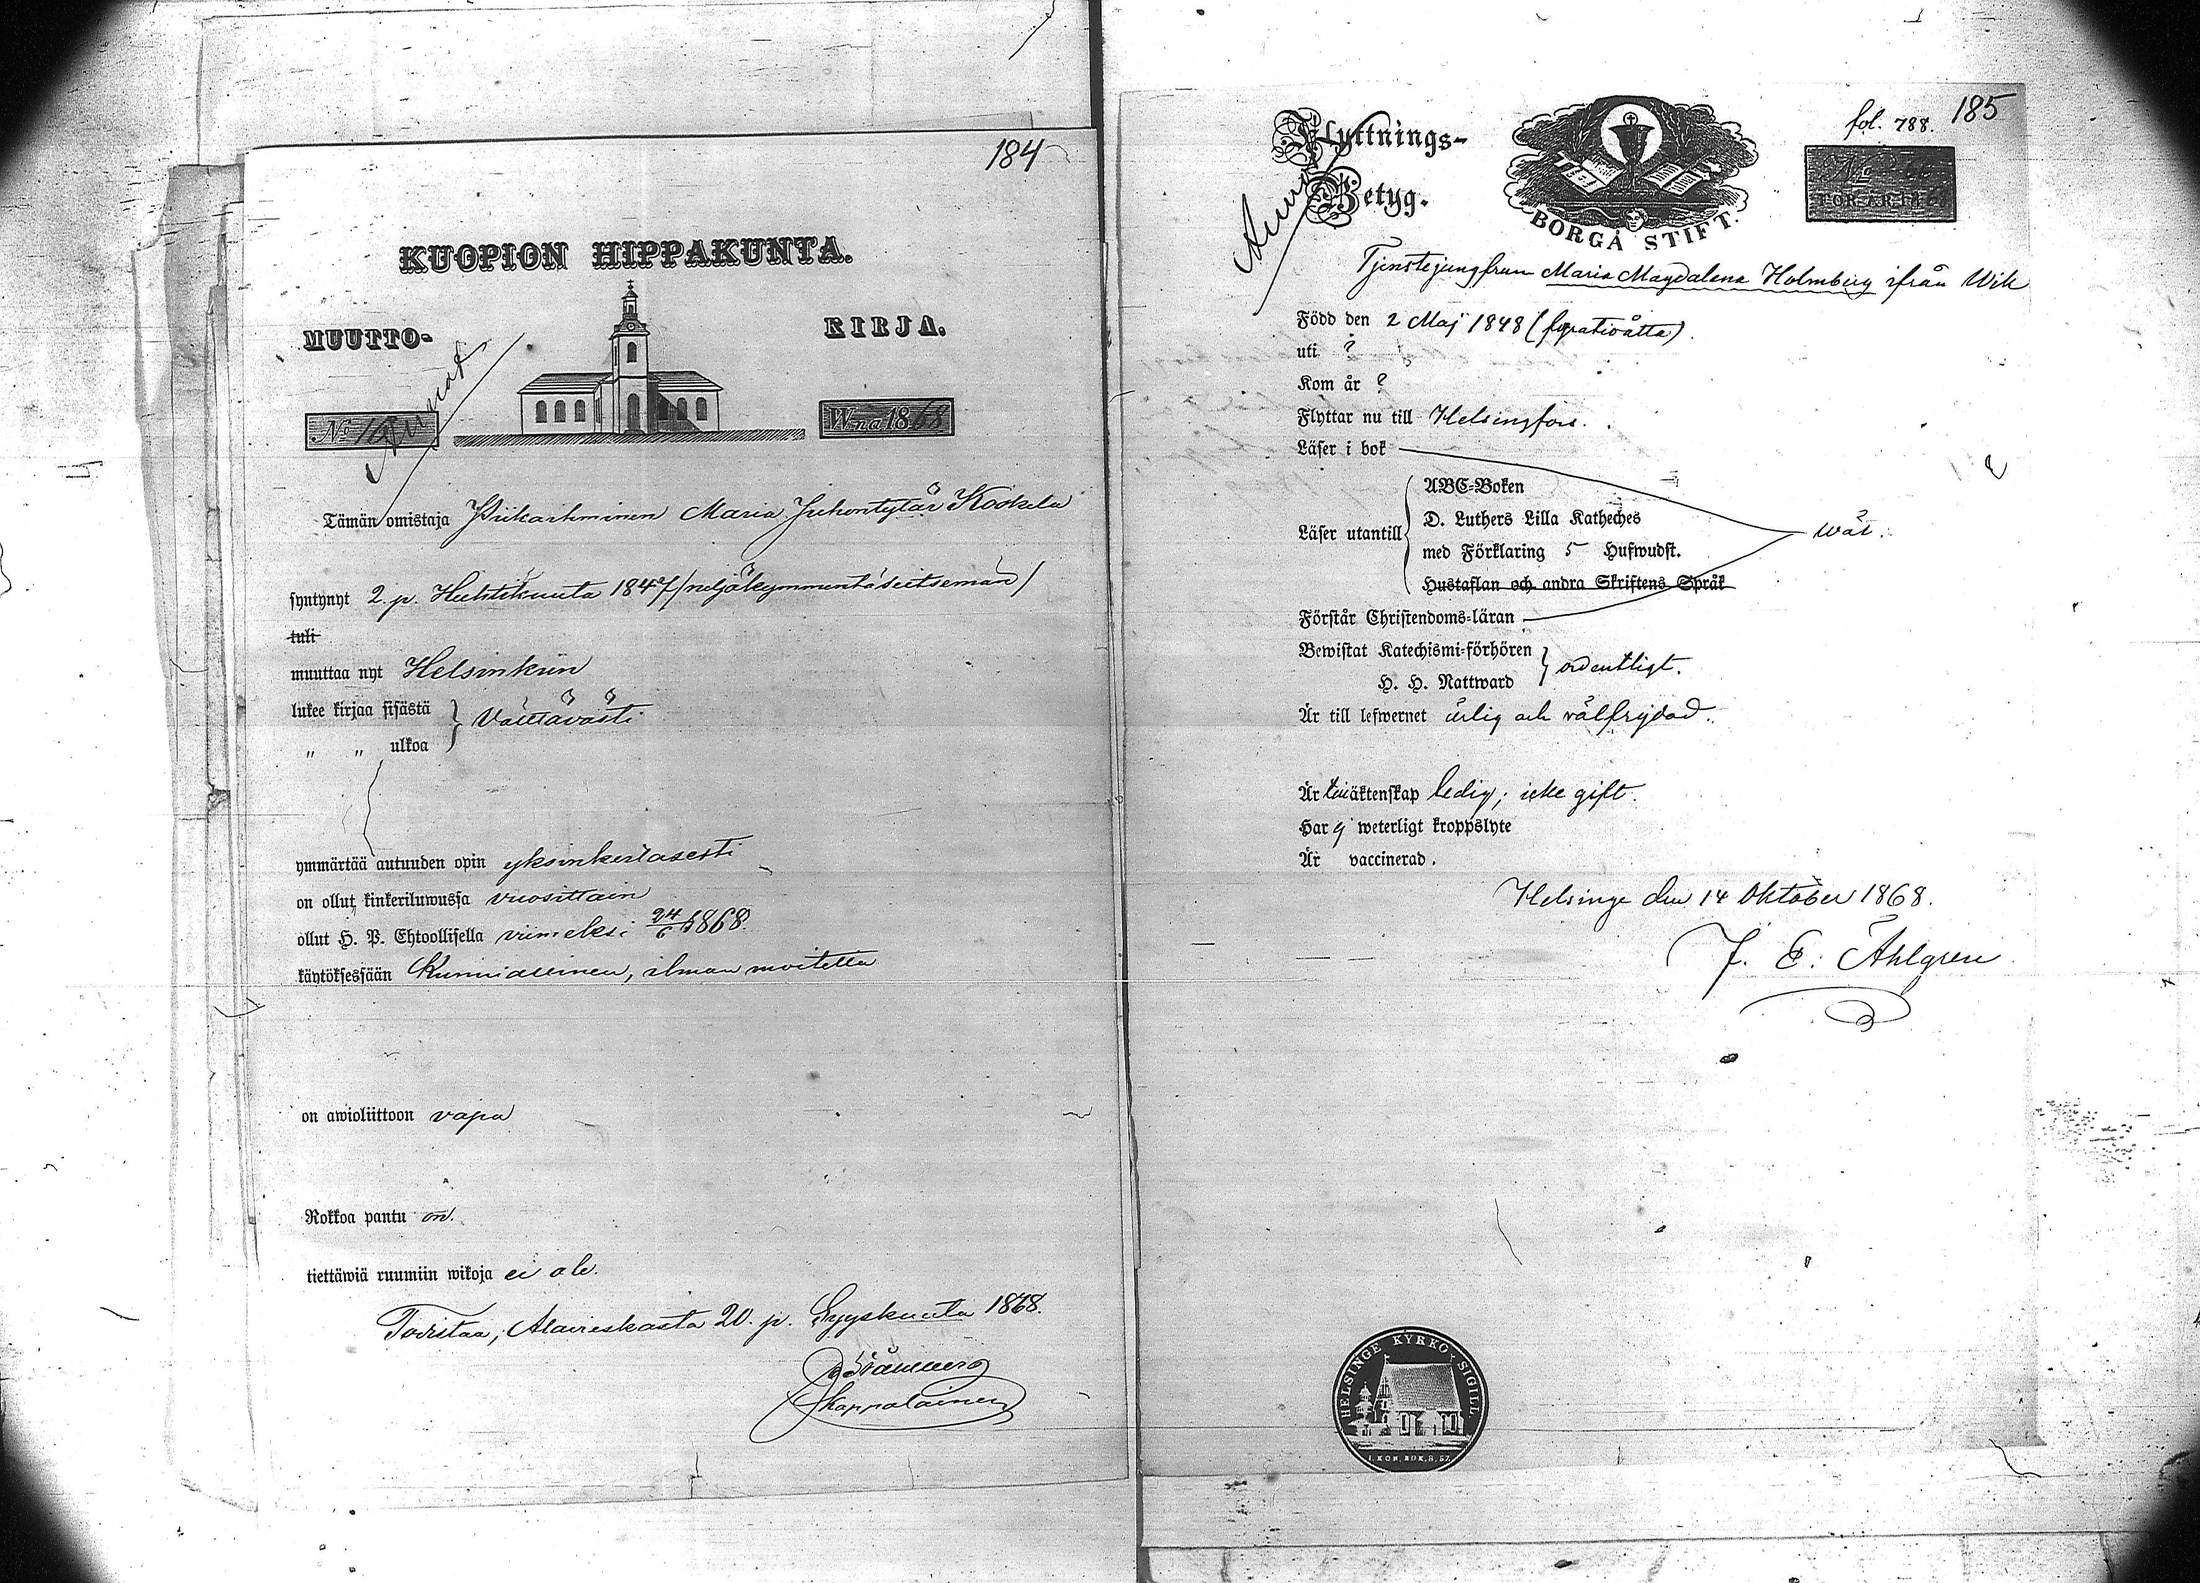 184
KUOPION HIPPAKUNTA.
MUUTTO- KIRJA.
No W:na 1868
Tämän omistaja Piikaihminen Maria Juhontytär Koskela
syntynyt 2. p. Huhtikuuta 1847 /neljäkymmentäseitsemän/
tuli
muuttaa nyt Helsinkiin
lukee kirjaa sisästä } Välttävästi
„ „ ulkoa
ymmärtää autuuden opin yksinkertasesti
on ollut kinkeriluwussa vuosittain
ollut H. P. Ehtoollisella viimeksi 24/6 1868.
käytöksessään Kunniallinen, ilman moitetta
on awioliittoon vapa
Rokkoa pantu on.
tiettäwiä ruumiin wikoja ei ole.
Todistaa, Alavieskasta 20. p. Syyskuuta 1868.
Kappalainen
fol. 788. 185
Flyttnings-
Betyg.
BORGÅ STIFT.
No
FÖR ÅR 186
Tjenstejungfrun Maria Magdalena Holmberg ifrån Wik
Född den 2 Maj 1848 (fyratioåtta).
uti ?
Kom år ?
Flyttar nu till Helsingfors.
Läser i bok
ABC-Boken
D. Luthers Lilla Katheches
Läser utantill { wäl.
med Förklaring 5 Hufwudst.
Hustaflan och andra Skriftens Språk
Förstår Christendoms-läran
Bewistat Katechismi-förhören } ordentligt.
H. H. Nattward
Är till lefwernet ärlig och välfrejdad.
Är till äktenskap ledig; icke gift.
Har ej weterligt kroppslyte
Är vaccinerad.
Helsinge den 14 Oktober 1868.
J. E. Åhlgren
HELSINGE KYRKO SIGILL